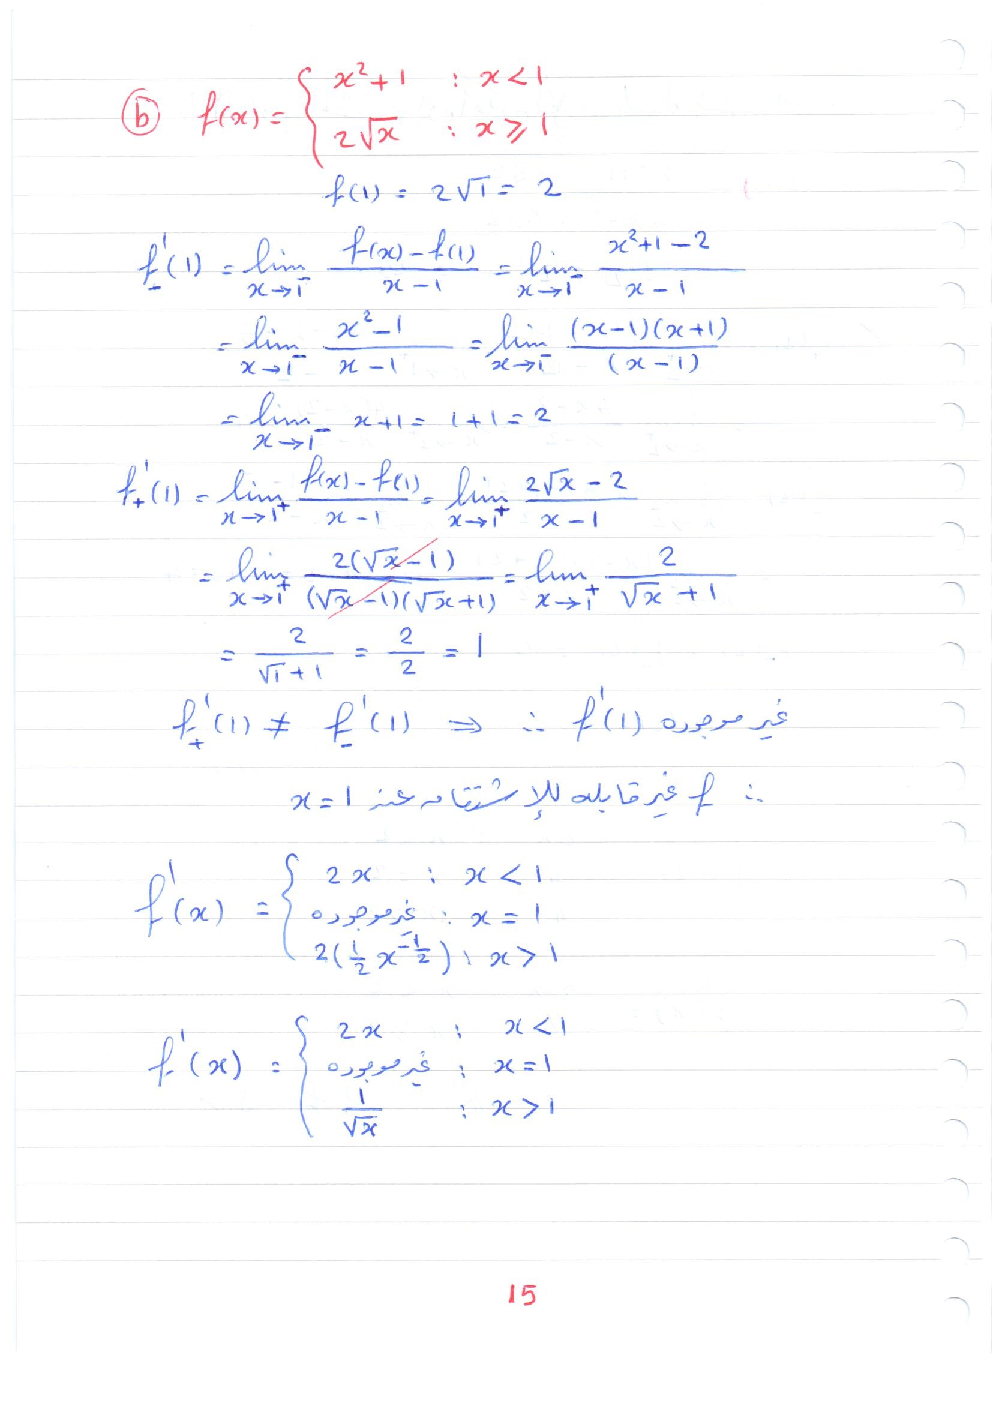 ⓑ f(x) = { x²+1 : x<1
2√x : x≥1
f(1) = 2√1 = 2
f₋'(1) = lim x→1⁻ (f(x)-f(1))/(x-1) = lim x→1⁻ (x²+1-2)/(x-1)
= lim x→1⁻ (x²-1)/(x-1) = lim x→1⁻ (x-1)(x+1)/(x-1)
= lim x→1⁻ x+1 = 1+1 = 2
f₊'(1) = lim x→1⁺ (f(x)-f(1))/(x-1) = lim x→1⁺ (2√x - 2)/(x-1)
= lim x→1⁺ 2(√x-1)/((√x-1)(√x+1)) = lim x→1⁺ 2/(√x+1)
= 2/(√1+1) = 2/2 = 1
f₊'(1) ≠ f₋'(1) ⇒ ∴ f'(1) غير موجوده
∴ f غير قابله للإشتقاق عند x=1
f'(x) = { 2x : x<1
غير موجوده : x=1
2(1/2 x^(-1/2)) : x>1
f'(x) = { 2x : x<1
غير موجوده : x=1
1/√x : x>1
15